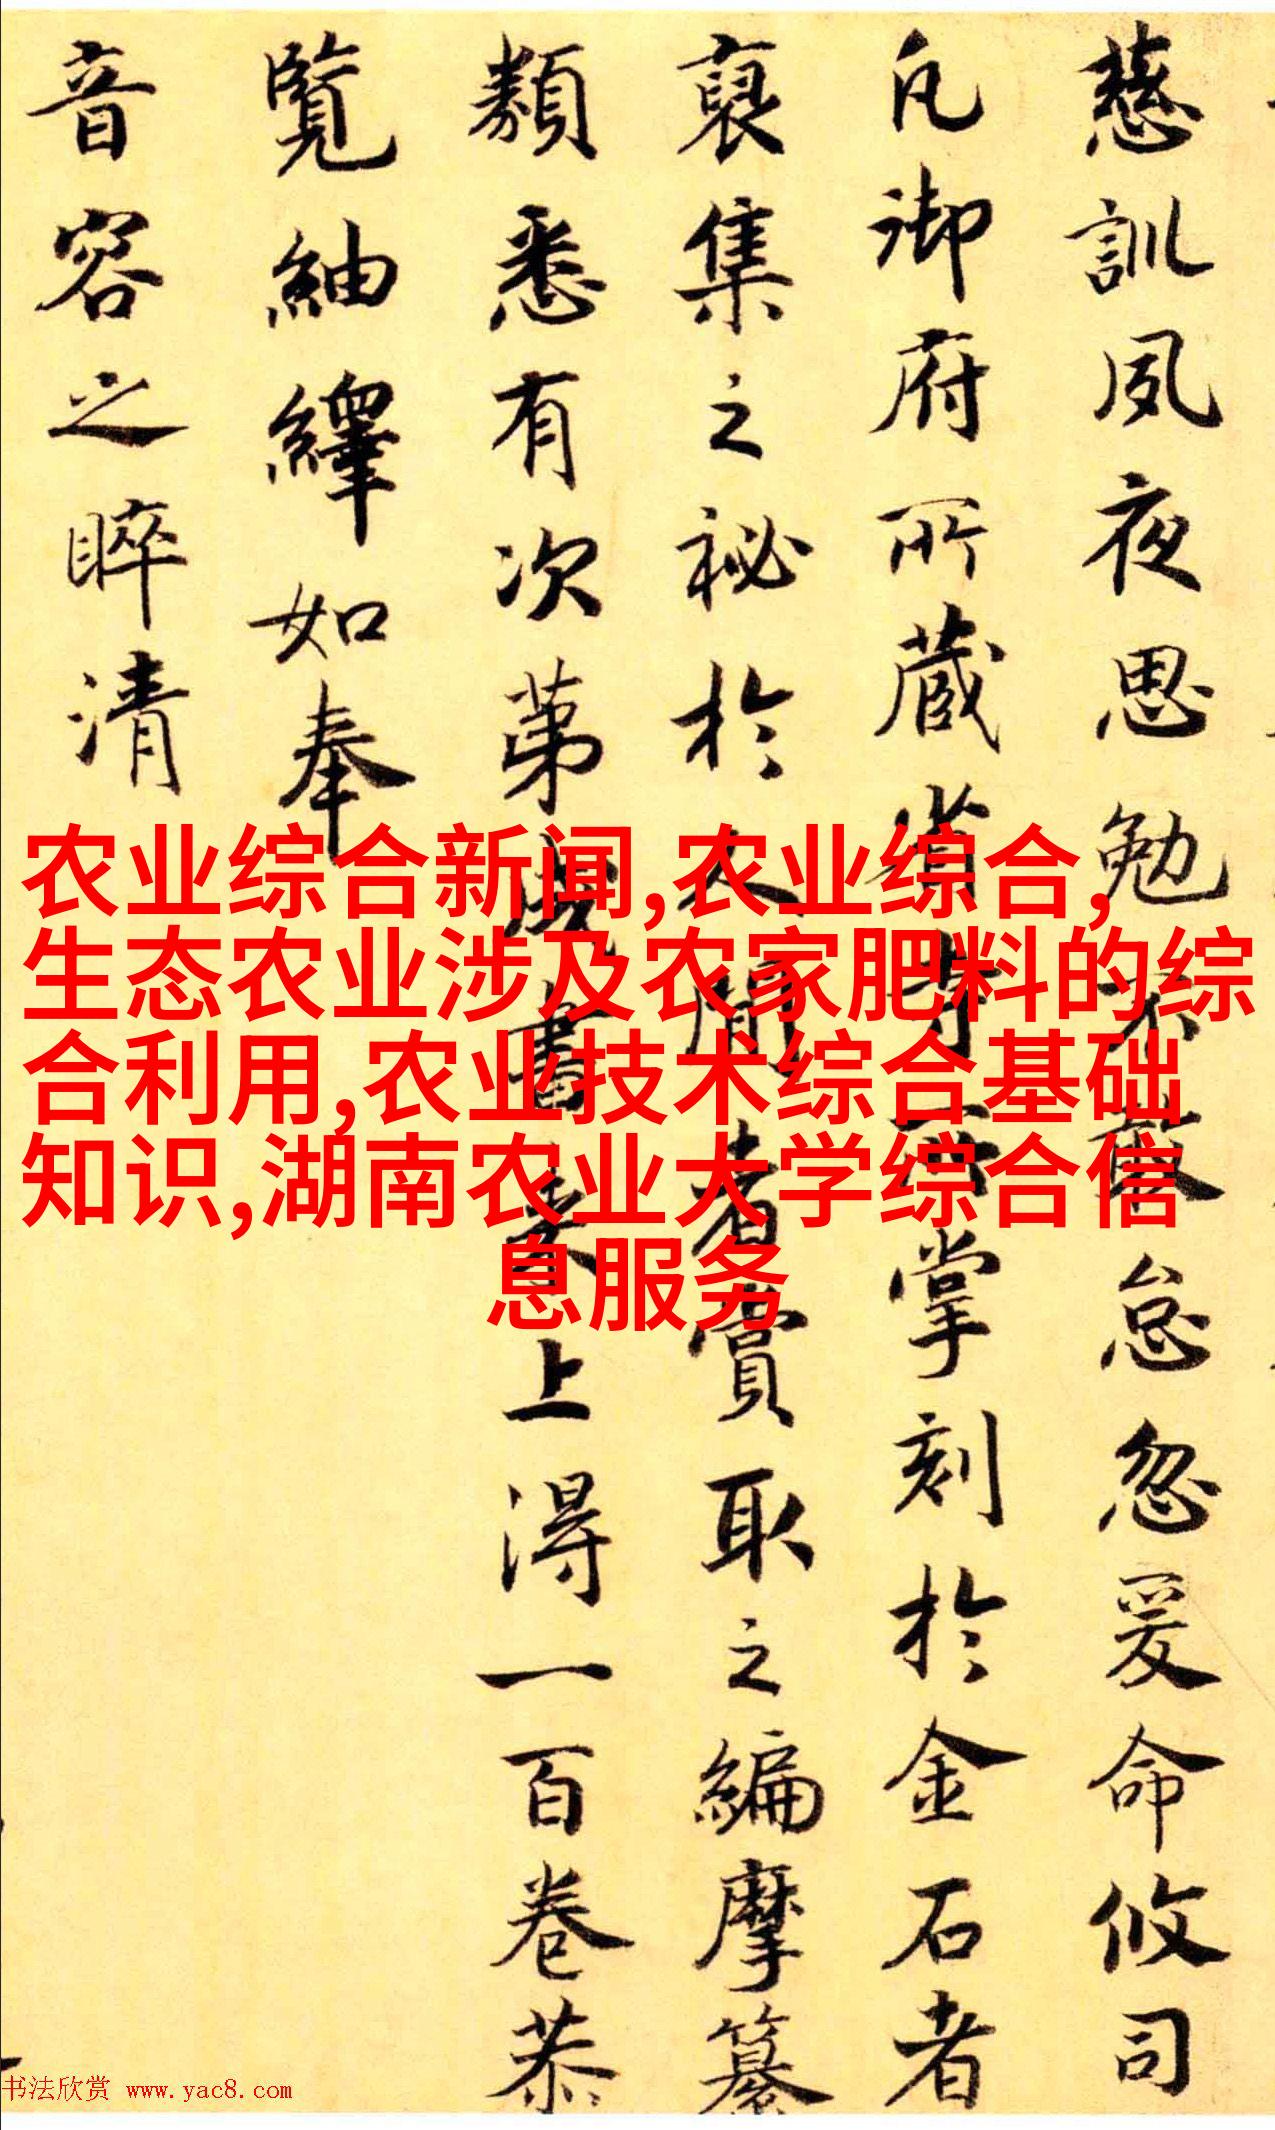 慈訓夙夜思勉不敢怠忽爰命攸司
凡御府所蔵當刻於金石者
裒集之祕於人間者賞取之編摩纂
類悉有次第成書来上得一百卷恭
覽紬繹如奉
音容之睟清
农业综合新闻,农业综合,
生态农业涉及农家肥料的综
合利用,农业技术综合基础
知识,湖南农业大学综合信
息服务
书法欣赏 www.yac8.com